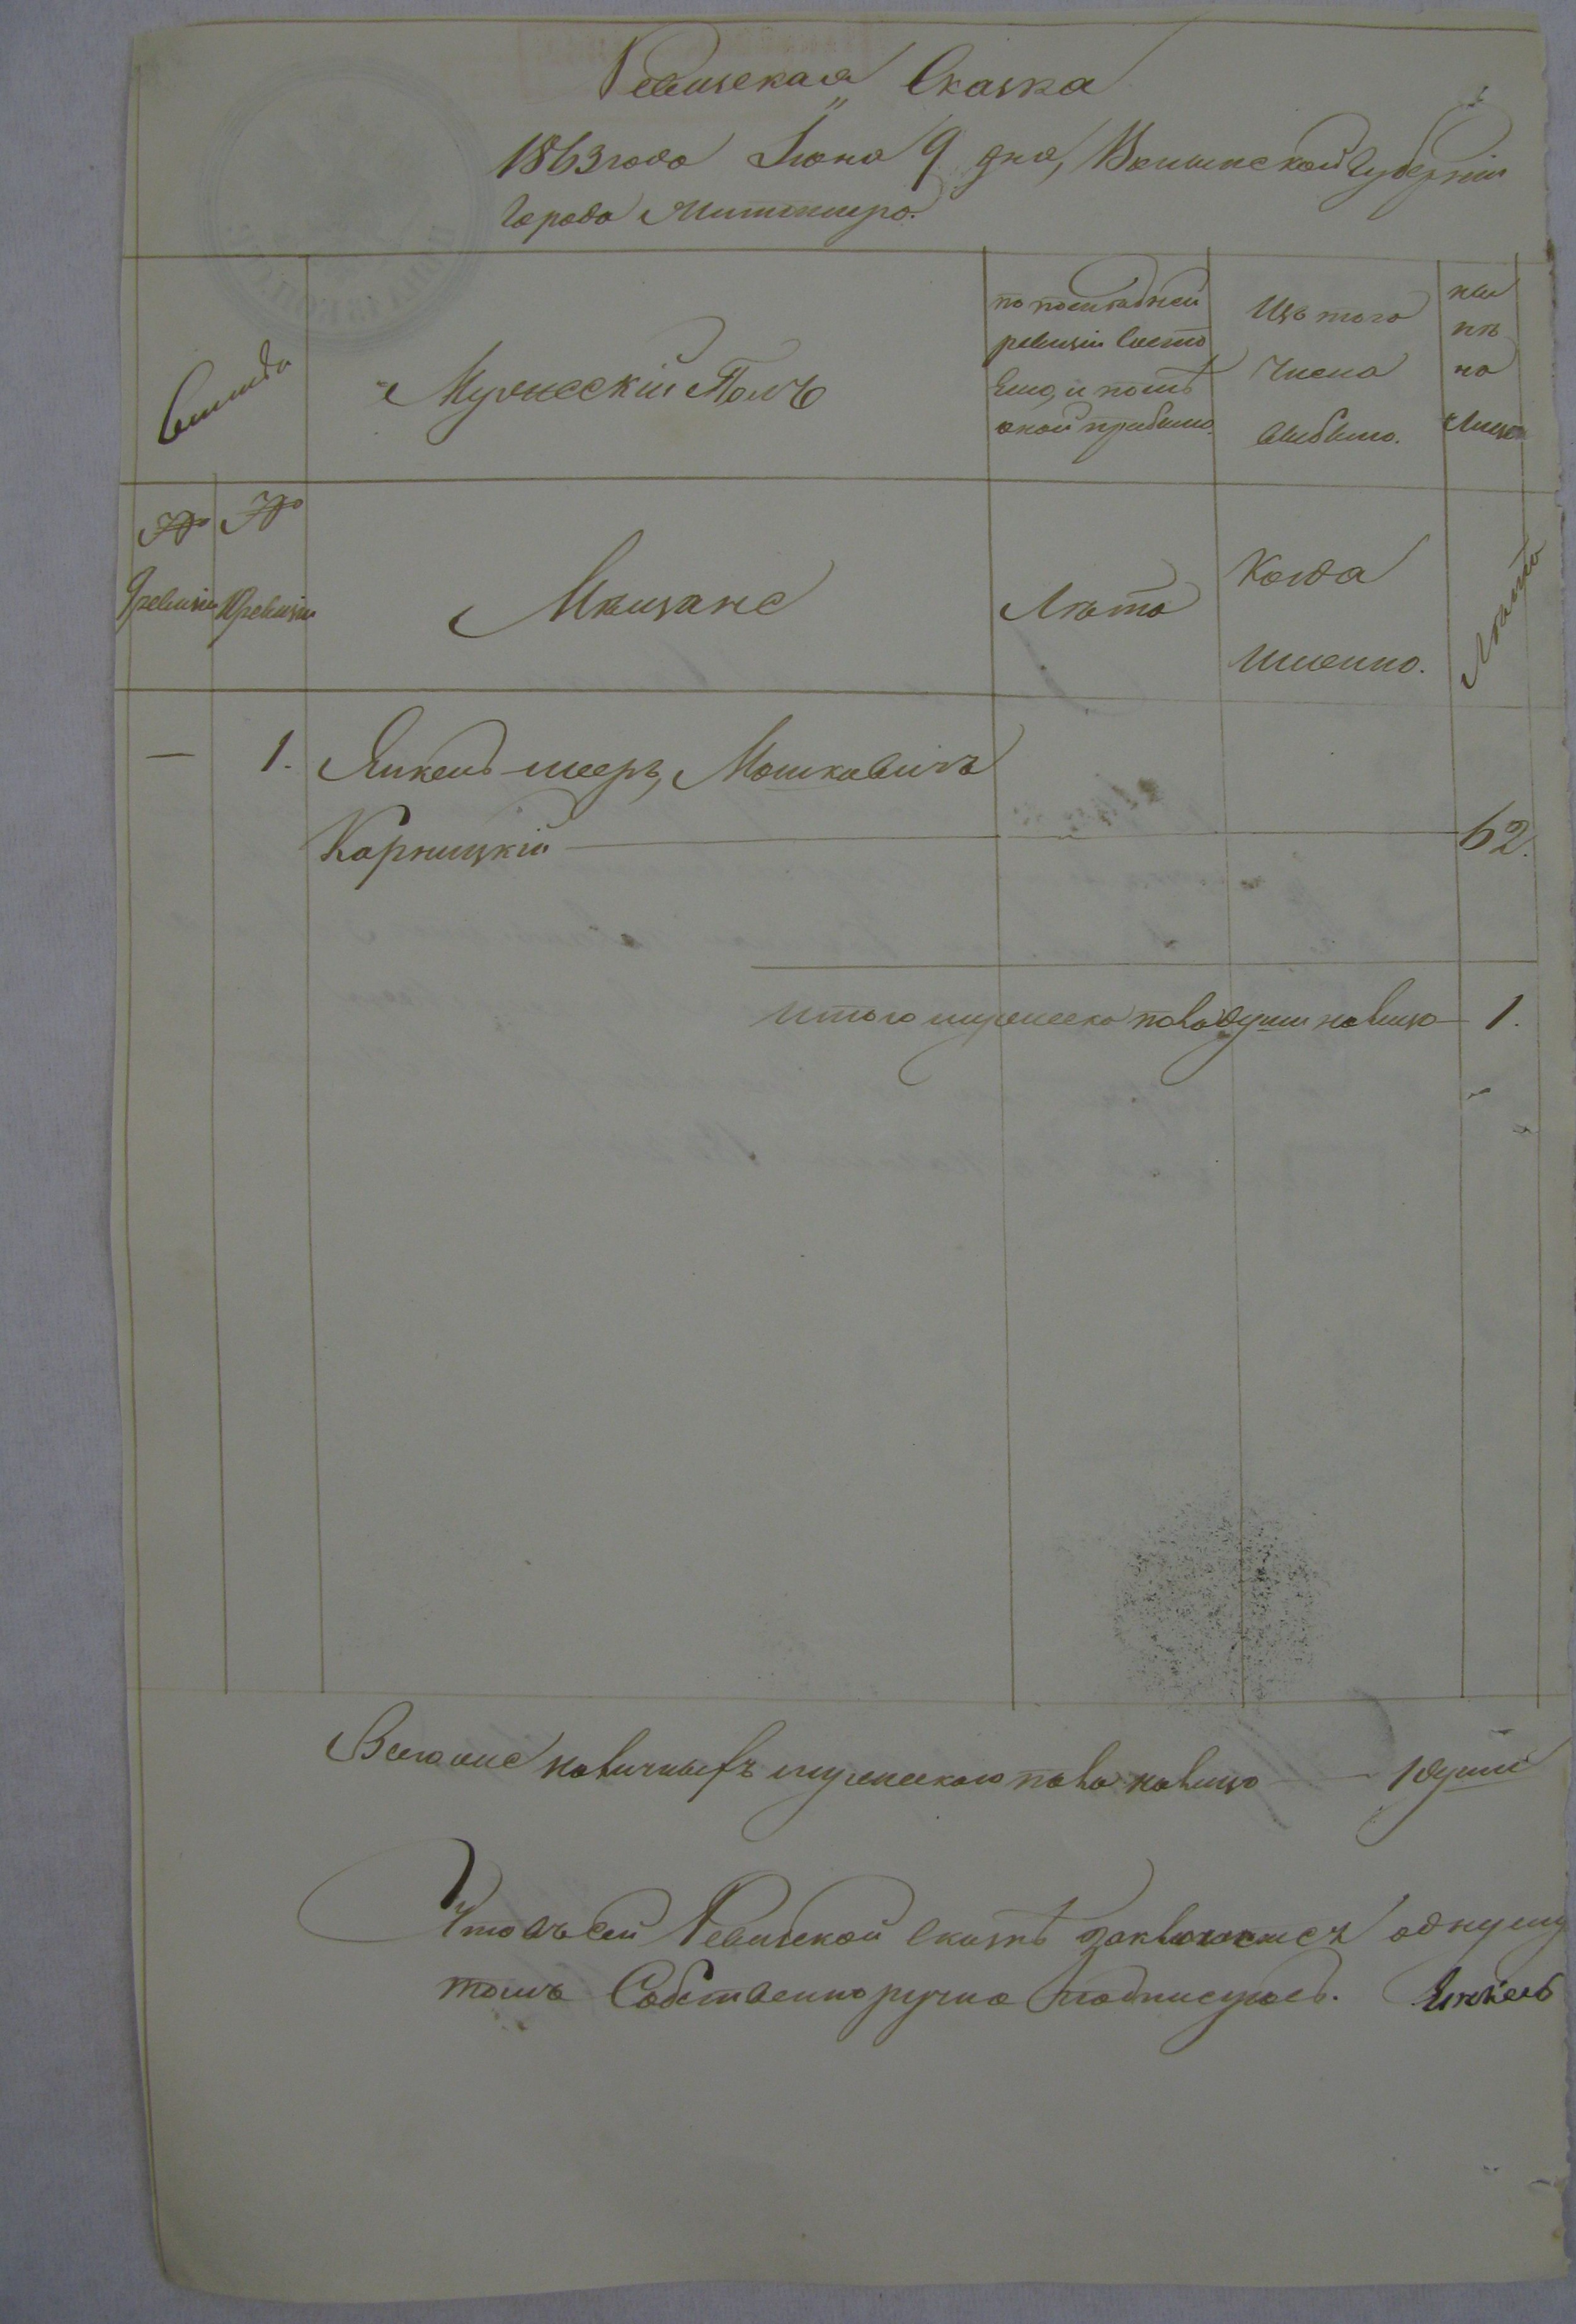 Ревизская Сказка
1863 года Іюня 9 дня, Волынской Губерніи
Города Житомира.
Мужескій Полъ
по последней
ревизіи состо
яло, и послѣ
оной прибыло.
Изъ того
Числа
выбыло.
ны
нѣ
на
Лицо
№
№
9 ревизіи
10 ревизіи
Мѣщане
Лѣта
Когда
Именно.
Лѣта
— 1. Янкель-мееръ, Мошковичъ
Карницкій 62.
Итого мужеска пола души налицо 1.
Всего оне наличныхъ мужескаго пола налицо 1 души
Что въ сей Ревизской сказкѣ одну
томъ Собственноручно подписуюсь. Янкель